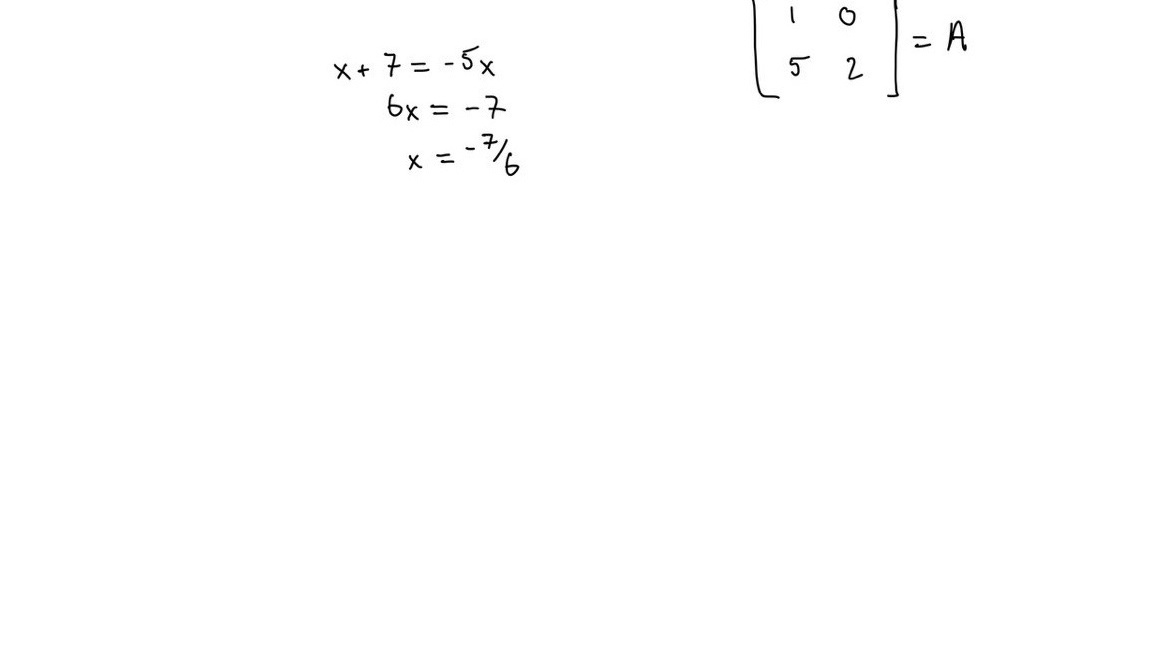 x + 7 = -5x
6x = -7
x = -7/6
[ 1 0
5 2 ] = A